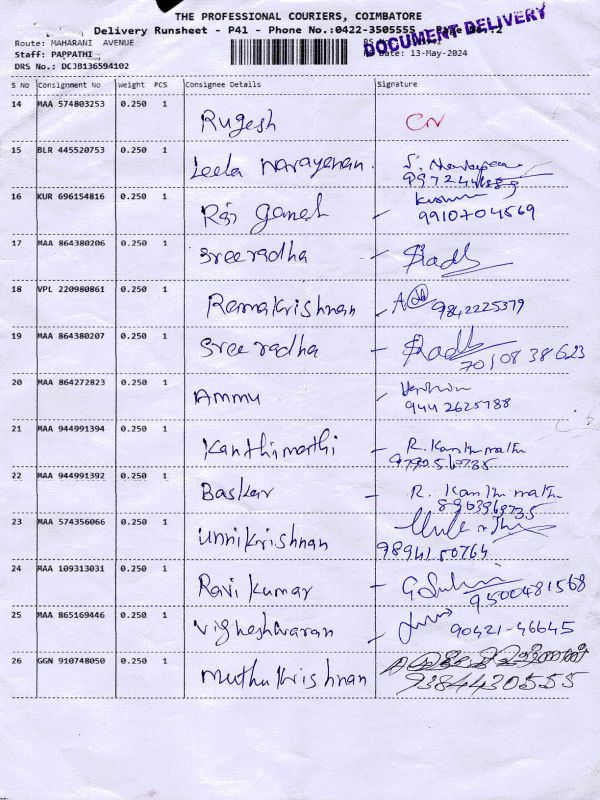 THE PROFESSIONAL COURIERS, COIMBATORE
Delivery Runsheet - P41 - Phone No.:0422-3505555
DOCUMENT DELIVERY
Route: MAHARANI AVENUE
Staff: PAPPATHI
Date: 13-May-2024
DRS No.: DCJB136594102
S No Consignment No Weight PCS Consignee Details Signature
14 MAA 574803253 0.250 1 Rugesh
15 BLR 445520753 0.250 1 Leela Narayanan
16 KUR 696154816 0.250 1 Raj Ganesh
9910704569
17 MAA 864380206 0.250 1 Sreeradha
18 VPL 220980861 0.250 1 Ramakrishnan
9842225379
19 MAA 864380207 0.250 1 Sree radha
70108 38623
20 MAA 864272823 0.250 1 Ammu
9442625788
21 MAA 944991394 0.250 1 Kanthimathi R. Kanthimathi
22 MAA 944991392 0.250 1 Baskar R. Kanthimathi
23 MAA 574356066 0.250 1 Unnikrishnan
98941 50764
24 MAA 109313031 0.250 1 Ravi Kumar
9500481568
25 MAA 865169446 0.250 1 Vigheshwaran
90421-46645
26 GGN 910748050 0.250 1 Muthukrishnan
9384430555